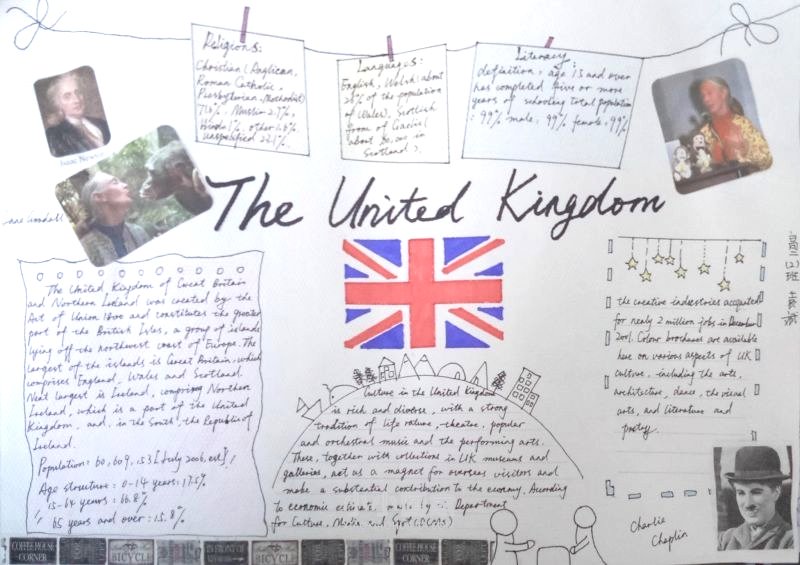 Religions:
Christian (Anglican,
Roman Catholic,
Presbyterian, Methodist)
71.6%, Muslim 2.7%,
Hindu 1%, other 1.6%
unspecified 23.1%.
Languages:
English, Welsh (about
26% of the population
of Wales), Scottish
form of Gaelic (
about 60,000 in
Scotland).
Literacy:
definition: age 15 and over
has completed five or more
years of schooling total population
: 99% male: 99% female: 99%
Isaac Newton
The United Kingdom
The United Kingdom of Great Britain
and Northern Ireland was created by the
Act of Union 1800 and constitutes the greater
part of the British Isles, a group of islands
lying off the northwest coast of Europe. The
largest of the islands is Great Britain, which
comprises England, Wales and Scotland.
Next largest is Ireland, comprising Northern
Ireland, which is a part of the United
Kingdom, and, in the South, the Republic of
Ireland.
Population: 60,609,153 [July 2006, est]
Age structure: 0-14 years: 17.5%
15-64 years: 66.8%
65 years and over: 15.8%
Culture in the United Kingdom
is rich and diverse, with a strong
tradition of life rature, theatre, popular
and orchestral music and the performing arts.
These, together with collections in UK museums and
galleries, act as a magnet for overseas visitors and
make a substantial contribution to the economy. According
to economic estimate, made by the Department
for Culture, Media and Sport (DCMS)
the creative industries accounted
for nearly 2 million jobs in December
2001. Colour brochures are available
here on various aspects of UK
culture, including the arts,
architecture, dance, the visual
arts, and literature and
poetry.
高二(2)班
Charlie
Chaplin
COFFEE HOUSE
CORNER
BICYCLE
IN FRONT OF
BICYCLE
COFFEE HOUSE
CORNER